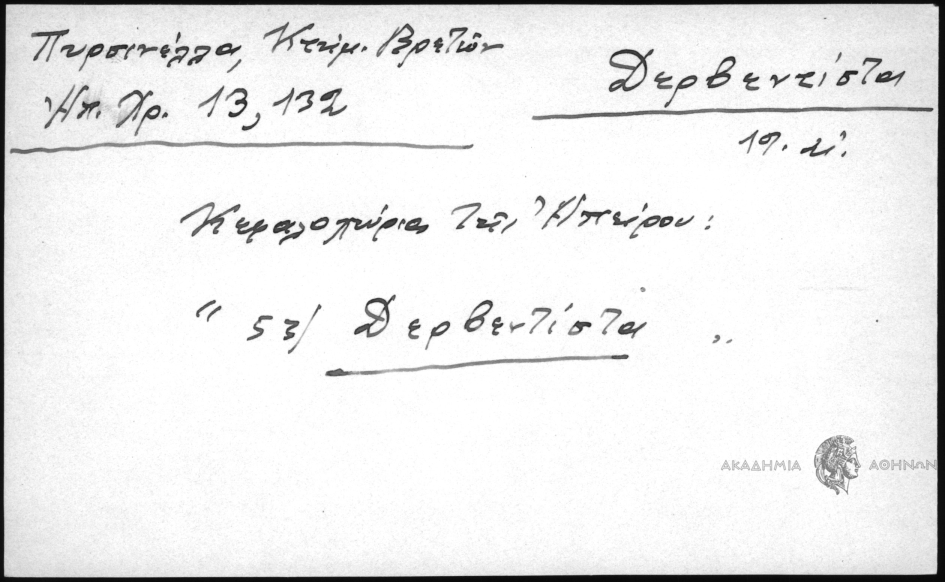 Πυρσινέλλα, Κτημ. Βρετῶν
Ἠπ. Χρ. 13, 132
Δερβεντίστα
19. αἰ.
Κεφαλοχώρια τῆς Ἠπείρου:
" 53) Δερβεντίστα "
ΑΚΑΔΗΜΙΑ ΑΘΗΝΩΝ